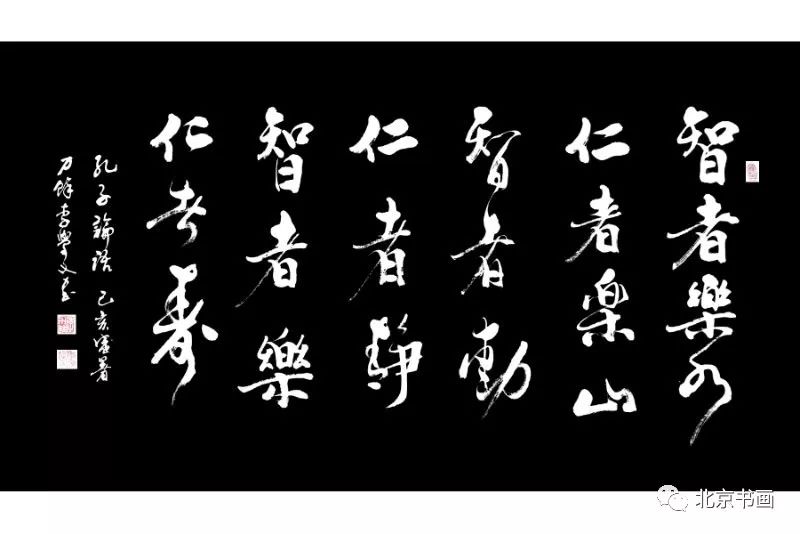 智者樂水
仁者楽山
智者動
仁者静
智者樂
仁者壽
孔子論語 己亥盛暑
李學文
北京书画